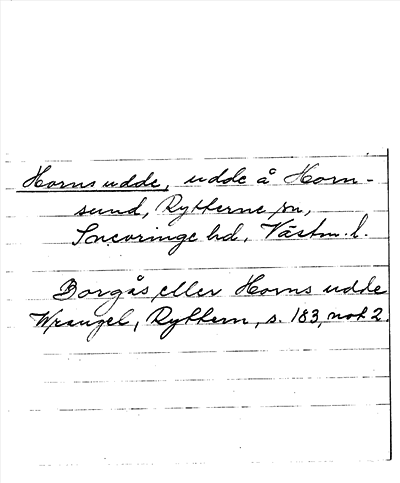 Horns udde, udde å Horn-
sund, Rytterne sn,
Snevringe hd, Västm. l.
Borgås eller Horns udde
Wrangel, Ryttern, s. 183, not 2.